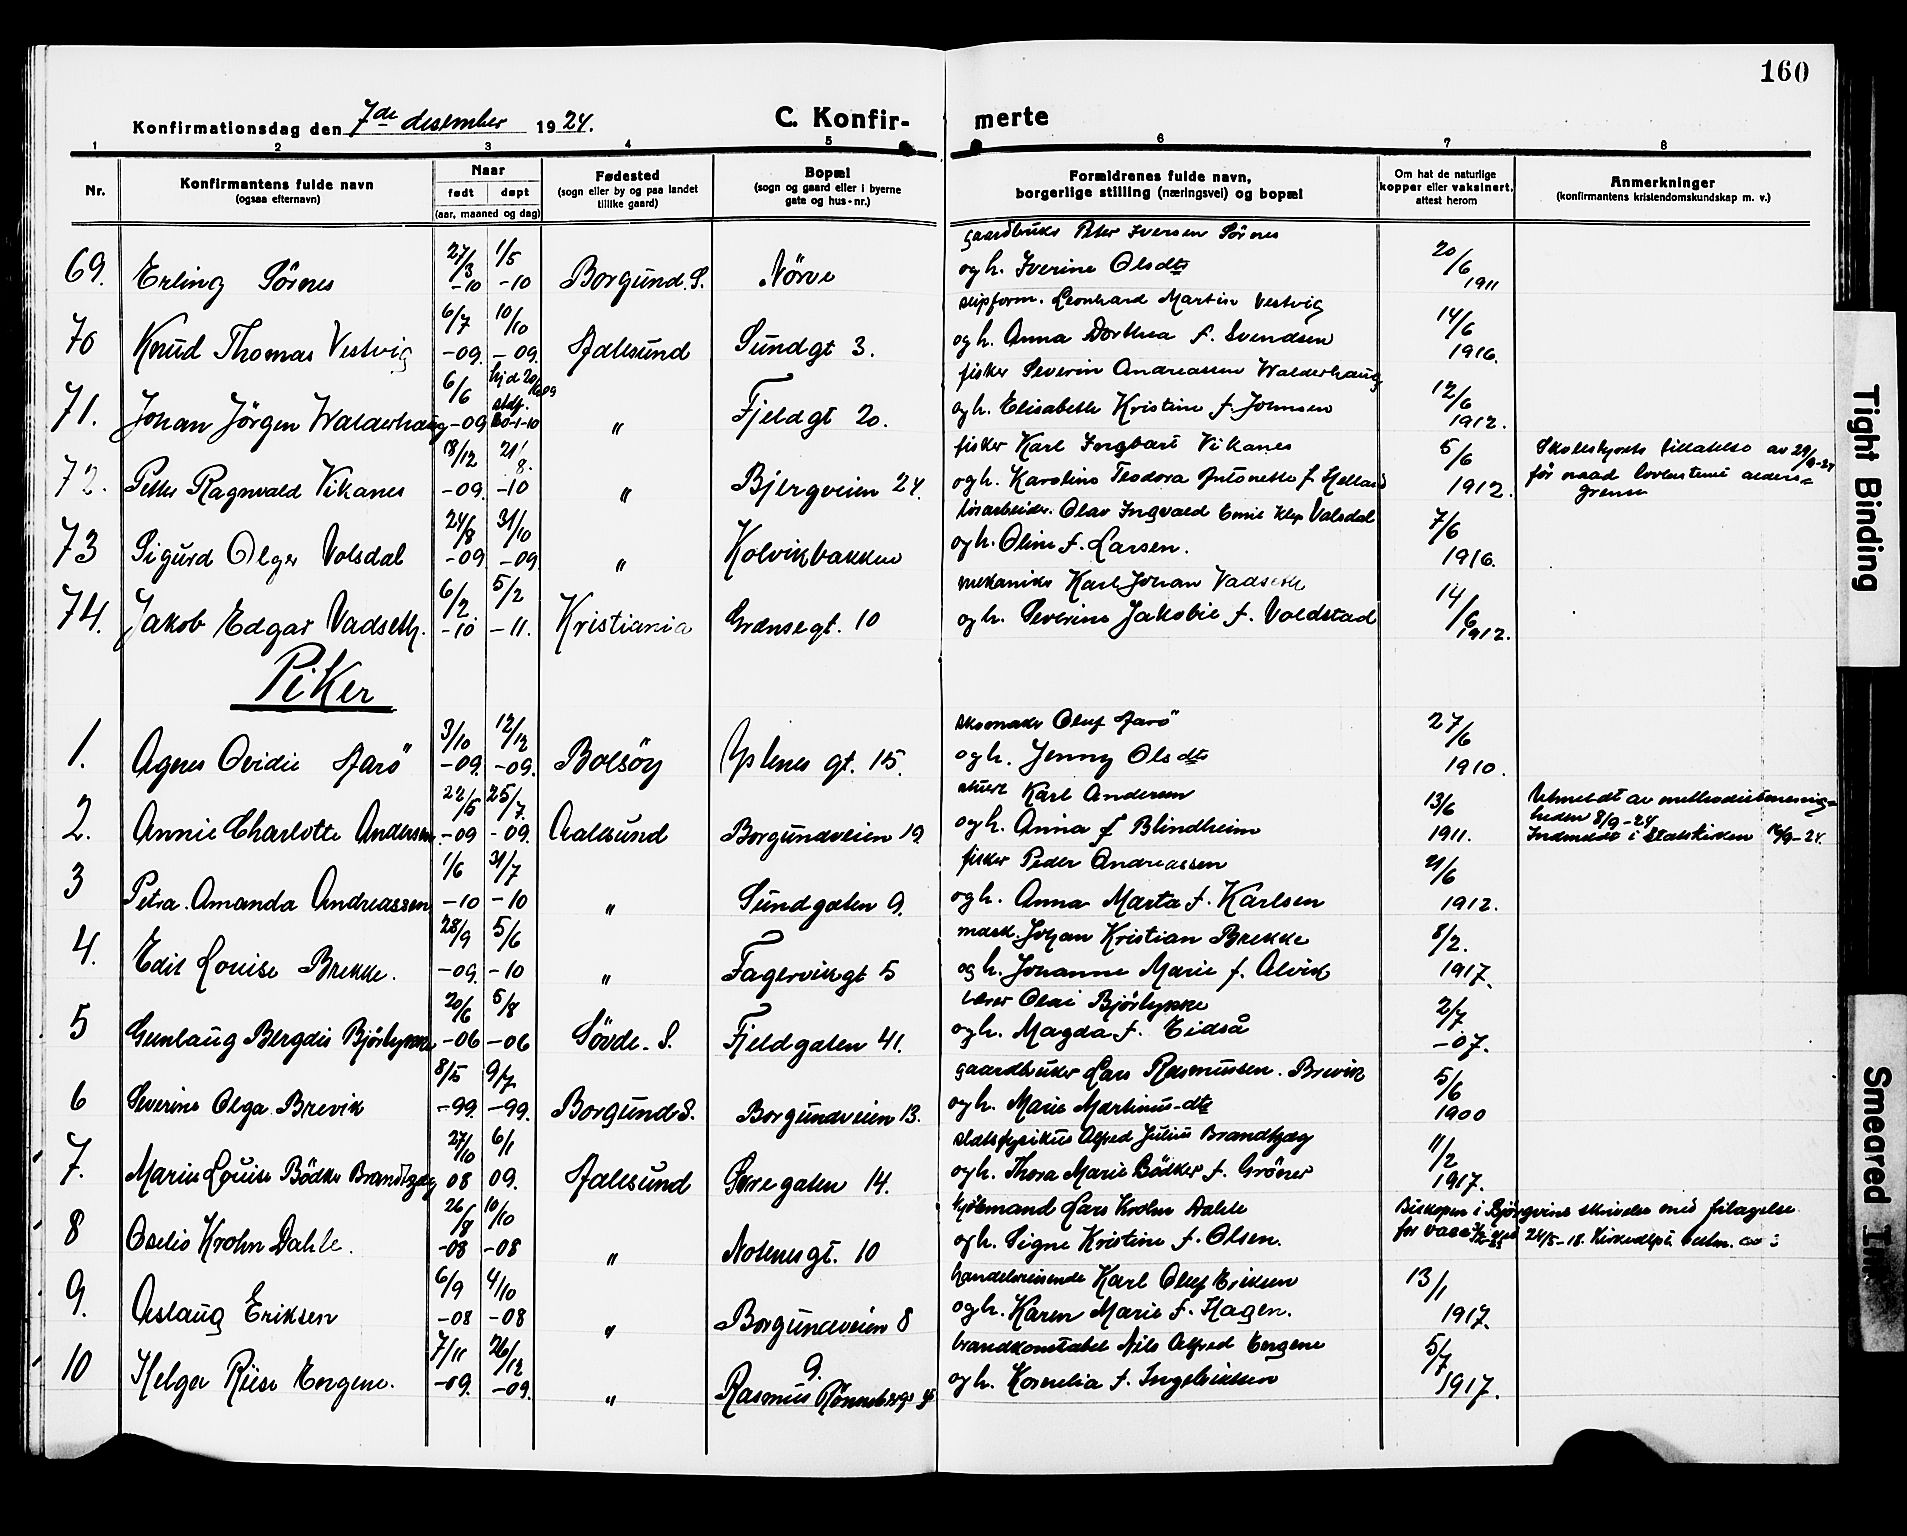 160
Konfirmationsdag den 7de desember 1924.
C. Konfirmerte
1 2 3 4 5 6 7 8
Nr.
Konfirmantens fulde navn
(ogsaa efternavn)
Naar
født døpt
(aar, maaned og dag)
Fødested
(sogn eller by og paa landet
tillike gaard)
Bopæl
(sogn og gaard eller i byerne
gate og hus-nr.)
Forældrenes fulde navn,
borgerlige stilling (næringsvei) og bopæl
Om hat de naturlige
kopper eller vaksinert,
attest herom
Anmerkninger
(konfirmantens kristendomskundskap m. v.)
gaardbruker Peter Iversen Sörnes
69. Erling Sörnes 27/3 -10 1/5 -10 Borgund. S. Nörve og h. Iverine Olsdtr 20/6 1911
slipform. Leonhard Martin Vestvig
70 Knud Thomas Vestvig 6/7 -09. 10/10 -09. Aalesund Sundgt 3. og h. Anna Dorthea f. Svendsen 14/6 1916.
fisker Severin Andreassen Walderhaug
71. Johan Jörgen Walderhaug 6/6 -09 hjd 20/6 09 stdf. 20-1-10 " Fjeldgt 20. og h. Elisabeth Kristine f. Johnsen 12/6 1912.
fisker Karl Ingbart Vikanes
72. Petter Ragnvald Vikanes 18/12 -09. 21/8. -10 " Bjergveien 24. og h. Karoline Teodora Antonette f. Helland 5/6 1912.
Skolestyrets tillatelse av 29/9-24
før naad lovbestemt alders=
grense
lösarbeider. Olav Ingvald Emil Klep Valsdal
73 Sigurd Olger Volsdal 24/8 -09 31/10 -09. " Kolvikbakken og h. Oline f. Larsen. 7/6 1916.
mekaniker Karl Johan Vadseth
74. Jakob Edgar Vadseth. 6/2 -10 5/2 -11. Kristiania Grensegt. 10 og h. Severine Jakobie f. Voldstad 14/6 1912.
Piker
skomaker Oluf Aarö
1. Agnes Ovidie Aarö 3/10 -09. 12/12 -09. Bolsöy Ystenes gt. 15. og h. Jenny Olsdtr 27/6 1910.
stuert Karl Andersen
2. Annie Charlotte Andersen. 22/5 -09 25/7 -09. Aalesund Borgundveien 19. og h. Anna f Blindheim 13/6 1911.
Utmeldt av methodistmenig=
heden 8/9-24
Indmeldt i Statskirken 16/9-24.
fisker Peder Andreassen
3 Petra. Amanda Andreassen 1/6 -10 31/7 -10 " Sundgaten 9. og h. Anna Marta f. Karlsen 21/6 1912.
mask. Johan Kristian Brekke
4. Edit Louise Brekke. 28/9 -09. 5/6 -10 " Fagervikgt 5 og h. Johanne Marie f. Alvik 8/2. 1917.
lærer Olai Björlykke
5 Gunlaug Bergdis Björlykke 20/6 -06 5/8 -06 Sövde. S. Fjeldgaten 41. og h. Magda f. Eidså 2/7 -07.
gaardbruker Lars Rasmussen. Brevik
6 Severine Olga. Brevik 8/5 -99. 9/7 -99. Borgund S. Borgundveien 13. og h. Marie Martinus-dtr 5/6 1900
statsfysikus Alfred Julius Brandtzæg
7. Marie Louise Bödker Brandtzæg 27/10 08 6/1 09. Aalesund Storegaten 14. og h. Thora Marie Bödker f. Gröner 11/2 1917.
kjöbmand Lars Krohn Dahle
8 Oselie Krohn Dahle. 26/8 -08 10/10 -08 " Notenesgt. 10 og h. Signe Kristine f. Olsen.
Biskopen i Björgvins skrivelse med fritagelse
for vacc 24/5-18. Kirkedept.
handelsreisende Karl Oluf Eriksen
9. Aslaug Eriksen 6/9 -08 4/10 -08 " Borgundveien 8 og h. Karen Marie f. Hagen. 13/1 1917.
brandkonstabel Nils Alfred Engene
10 Helga Riise Engene. 7/11 -09. 26/12 -09. " Rasmus Rönnebergs g. 9. og h. Kornelia f. Ingebriktsen 5/7 1917.
Tight Binding
Smeared Ink